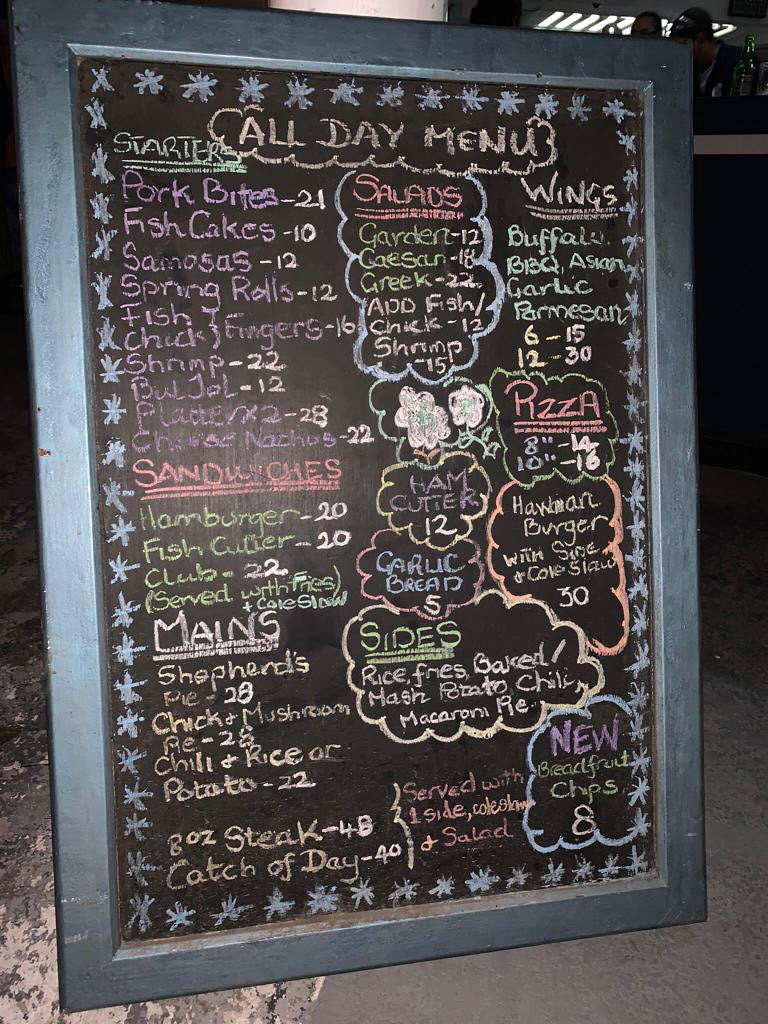 ALL DAY MENU
STARTERS
Pork Bites-21
Fish Cakes-10
Samosas-12
Spring Rolls-12
Fish
Chick } Fingers-16
Shrimp-22
BulJol-12
Platter x 2-28
Cheese Nachos-22
SANDWICHES
Hamburger-20
Fish Cutter-20
Club-22
(Served with Fries)
+ ColeSlaw
MAINS
Shepherd's
Pie-28
Chick + Mushroom
Pie-28
Chili + Rice or
Potato-22
8oz Steak-48
Catch of Day-40
Served with
1 side, coleslaw
+ Salad
SALADS
Garden-12
Caesar-18
Greek-22
ADD Fish/
Chick-12
Shrimp
-15
HAM
CUTTER
12
GARLIC
BREAD
5
SIDES
Rice, fries, Baked/
Mash Potato, Chili,
Macaroni Pie.
WINGS
Buffalo,
BBQ, Asian,
Garlic
Parmesan
6-15
12-30
PIZZA
8"-14
10"-16
Hawaiian
Burger
with Side
+ Cole Slaw
30
NEW
Breadfruit
Chips
8